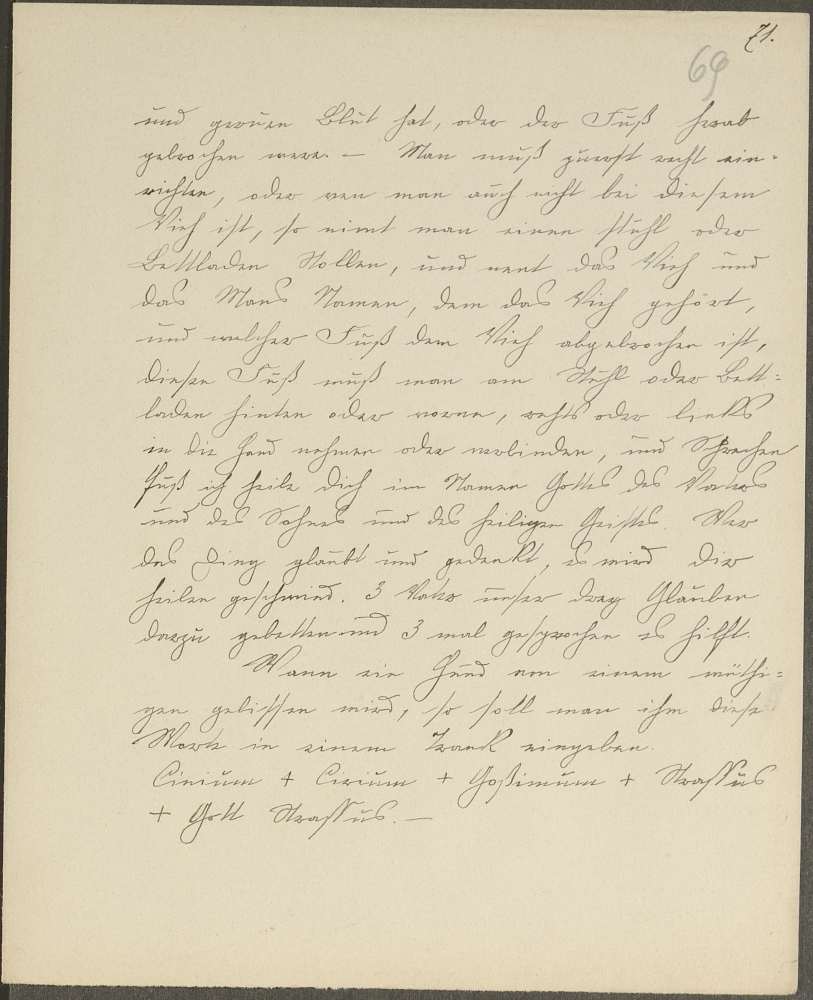 71.
69
und genuen Blut hat, oder der Fuß herab
gebrochen were. — Man muß zuerst recht ein-
richten, oder wen man auch nicht bei diesem
Vieh ist, so nimt man einen stuhl oder
Bettladen Stollen, und nent das Vieh und
das Mans Namen, dem das Vieh gehört,
und welcher Fuß dem Vieh abgebrochen ist,
diesen Fuß muß man am Stuhl oder Bett=
laden hinten oder vorne, rechts oder links
in die Hand nehmen oder verbinden, und Sprechen
Fuß ich heile dich im Namen Gottes des Vaters
und des Sohnes und des heiligen Geistes. Wer
das Ding glaubt und gedenkt, es wird dir
heilen geschwind. 3 Vater unser drey Glauben
darzu gebetten und 3 mal gesprochen es hilft.
Wann ein Hund von einem wüthi=
gen gebissen wird, so soll man ihm diese
Worte in einem Trank eingeben.
Cinium + Cirium + Goßinium + Strassus
+ Gott Strassus. —